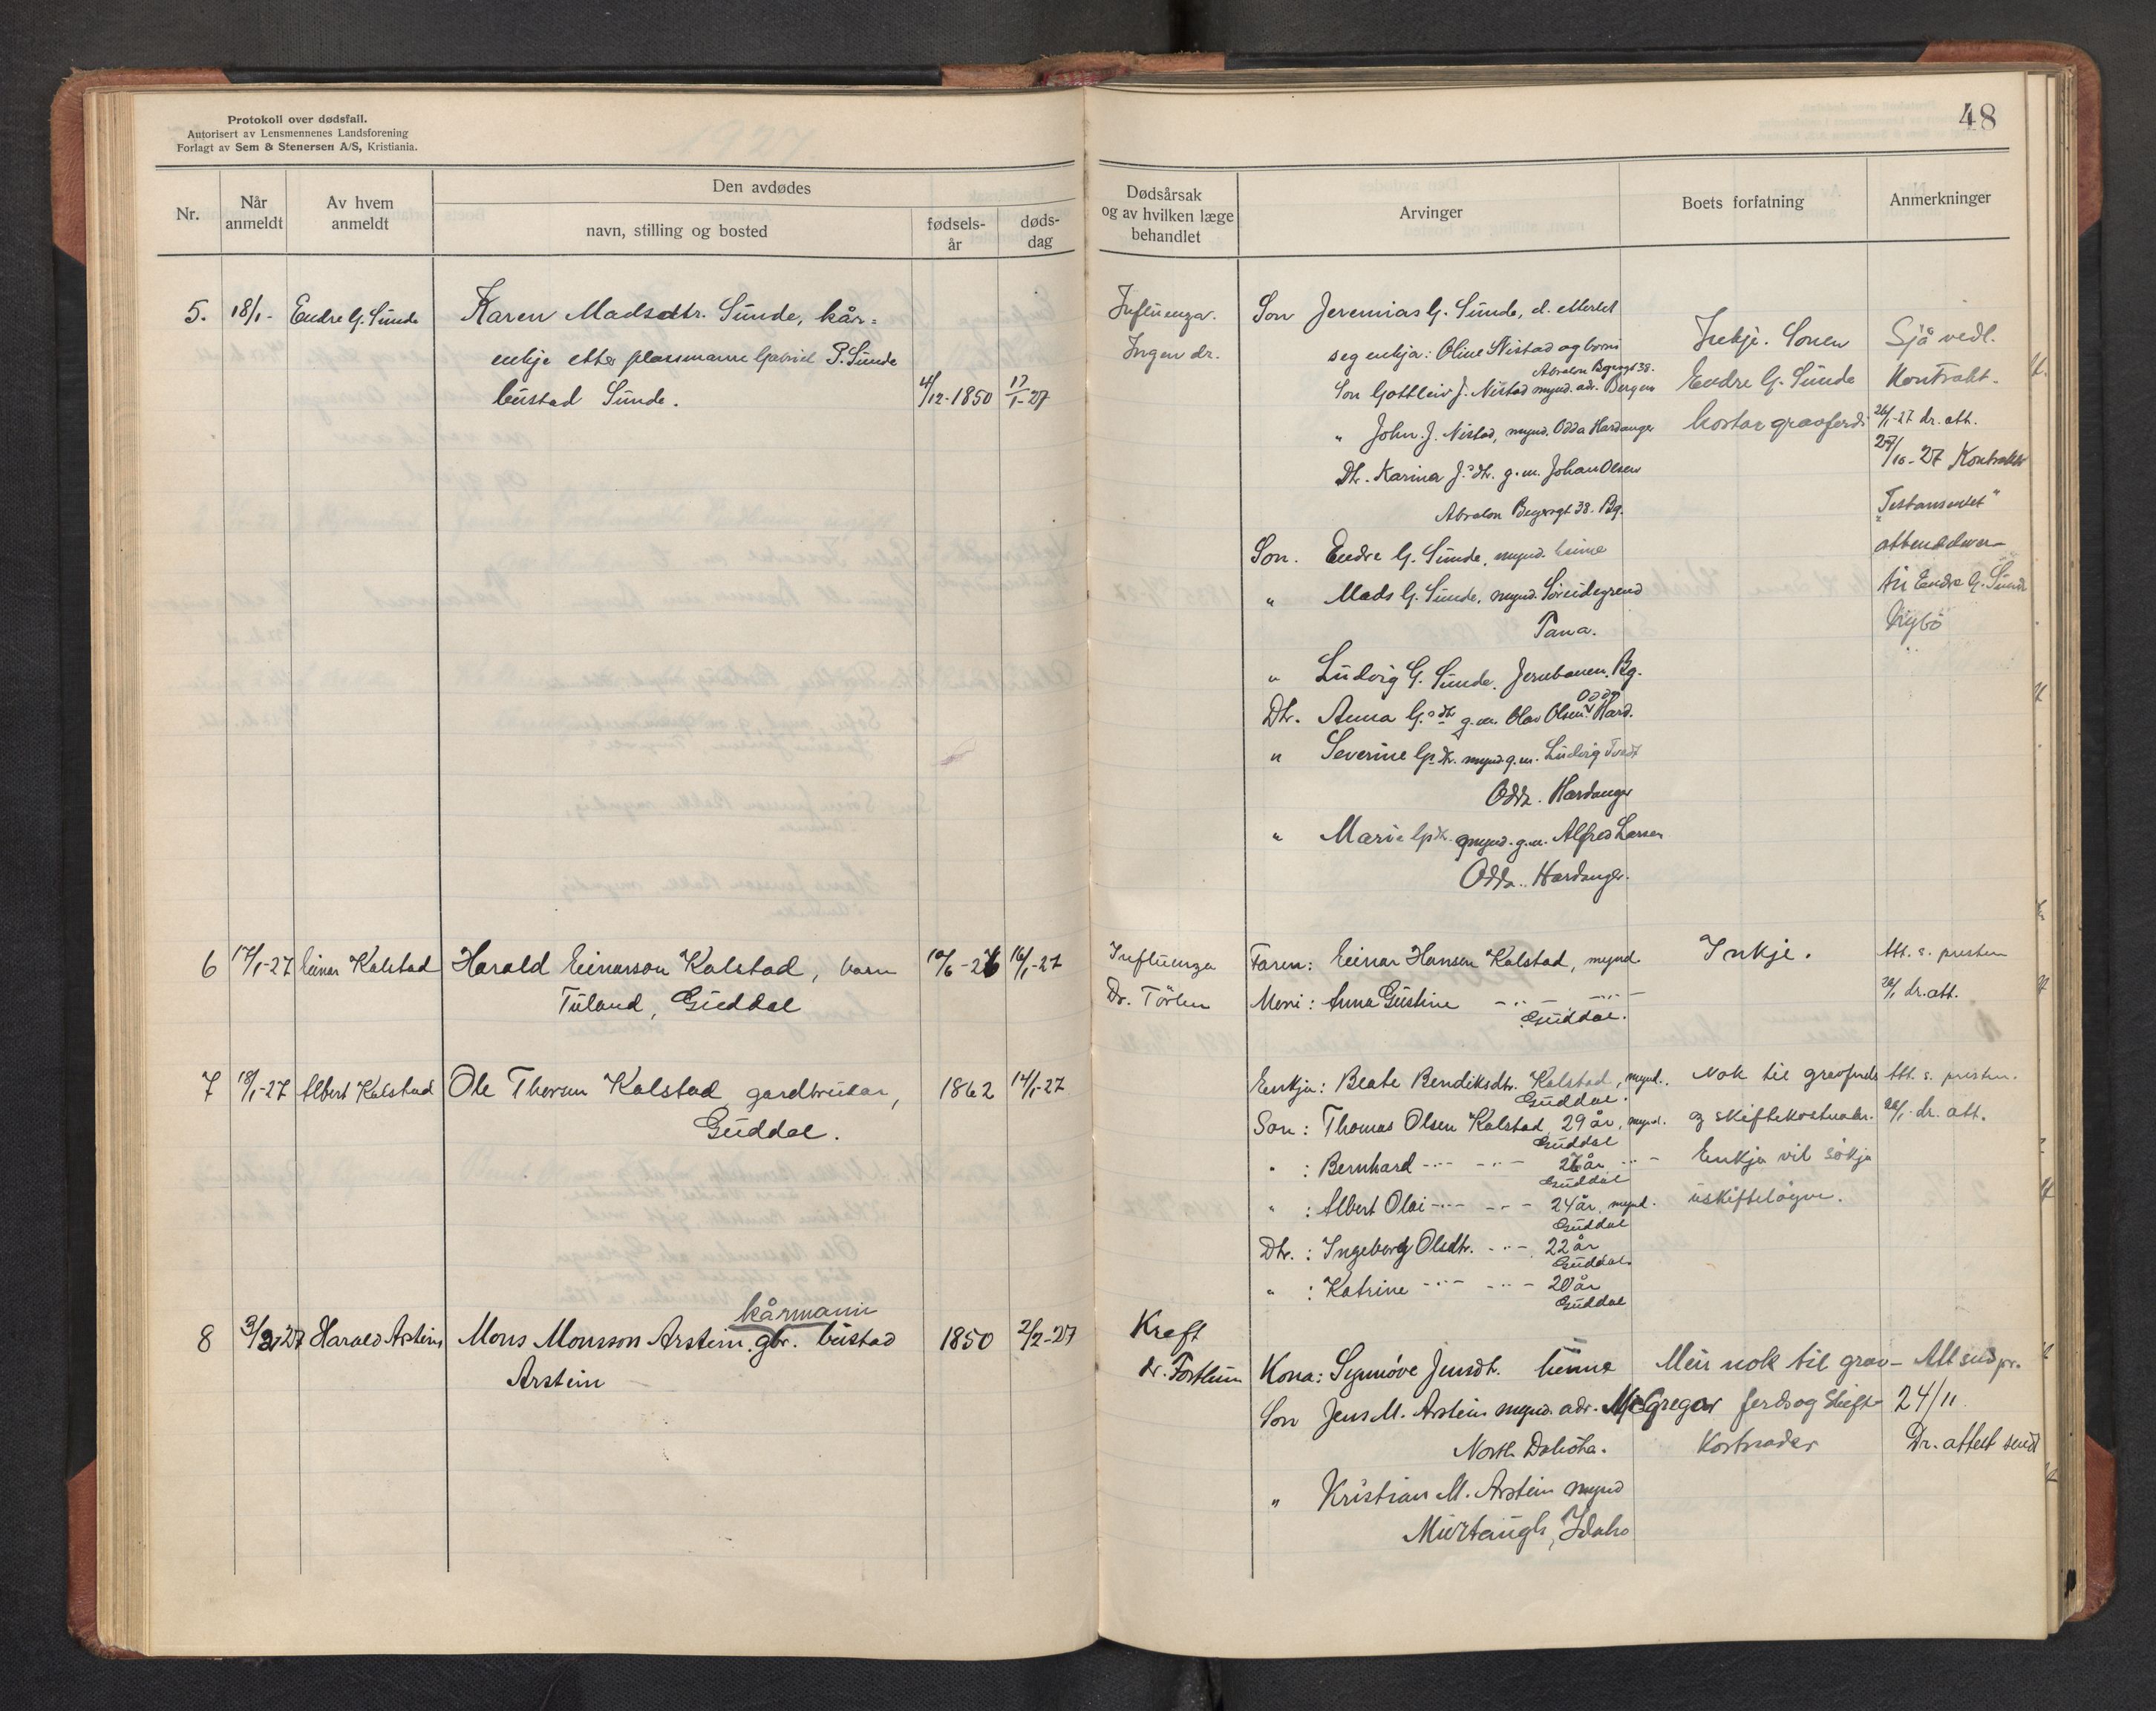 Protokoll over dødsfall.
Autorisert av Lensmennenes Landsforening
Forlagt av Sem & Stenersen A/S, Kristiania.
48
Nr.
Når anmeldt
Av hvem anmeldt
Den avdødes
navn, stilling og bosted
fødsels-år
døds-dag
Dødsårsak og av hvilken læge behandlet
Arvinger
Boets forfatning
Anmerkninger
5. 18/1- Endre G. Sunde Karen Madsdtr. Sunde, kår-
enkje etter plassmann Gabriel P. Sunde
bustad Sunde. 4/12-1850 17/1-27
Influenza.
Ingen dr.
Son Jeremias G. Sunde, d. etterlet
seg enkja: Oline Nistad og born
Absalon Beyersgt 38.
Son Gottleiv J. Nistad mynd. adr. Bergen
" John J. Nistad, mynd. Odda Hardanger
Dtr. Karina J.dtr. g.m. Johan Olsen
Absalon Beyersgt. 38. Bg.
Son. Endre G. Sunde, mynd. heime
" Mads G. Sunde, mynd.
Tana.
" Ludvig G. Sunde. Jernbanen. Bg.
Dtr. Anna G.dtr g.m. Olav Olsen Odda Hard.
" Severine G.dtr. mynd g.m. Ludvig
Odda. Hardanger
" Marie G.dtr. mynd. g.m. Alfred Larsen
Odda. Hardanger.
Inkje. Sonen
Endre G. Sunde
kostar gravferdi
Sjå vedl.
Kontrakt.
26/1-27 dr. att.
27/10-27 Kontrakt
"Testamentet"
til Endre G. Sunde
Nybö
6 17/1-27 Einar Kalstad Harald Einarson Kalstad, barn 10/6-26 16/1-27
Tuland, Guddal
Influenza
Dr.
Faren: Einar Hansen Kalstad, mynd.
Mori: Anna Gustine -"- -"-
Guddal.
Inkje.
Att. s. presten
26/1 dr. att.
7 18/1-27 Albert Kalstad Ole Thorsen Kalstad, gardbrukar, 1862 14/1-27
Guddal.
Enkja: Beate Bendiksdtr. Kalstad, mynd.
Guddal.
Son: Thomas Olsen Kalstad, 29 år, mynd.
Guddal
" : Bernhard -"- -"- 26 år -"-
Guddal
" : Albert Olai -"- -"- 24 år, mynd.
Guddal
Dtr. : Ingeborg Olsdtr. -"- 22 år
Guddal.
" : Katrine -"- -"- 20 år
Guddal
Nok til gravferds
og skiftekostnader.
Enkja vil søkja
uskifteløyve.
Att. s. presten.
26/1 dr. att.
8 3/2-27 Harald Arstein Mons Monsson Arstein. gbr. kårmann bustad 1850 2/2-27
Arstein
Kreft
dr.
Kona: Synnöve Jensdtr. heime
Son Jens M. Arstein mynd. adr. McGregor
North Dakota.
" Kristian M. Arstein mynd
Murtaugh, Idaho
Meir nok til grav-
ferds og skifte
kostnader
Att send pr.
24/11
Dr. attest sendt